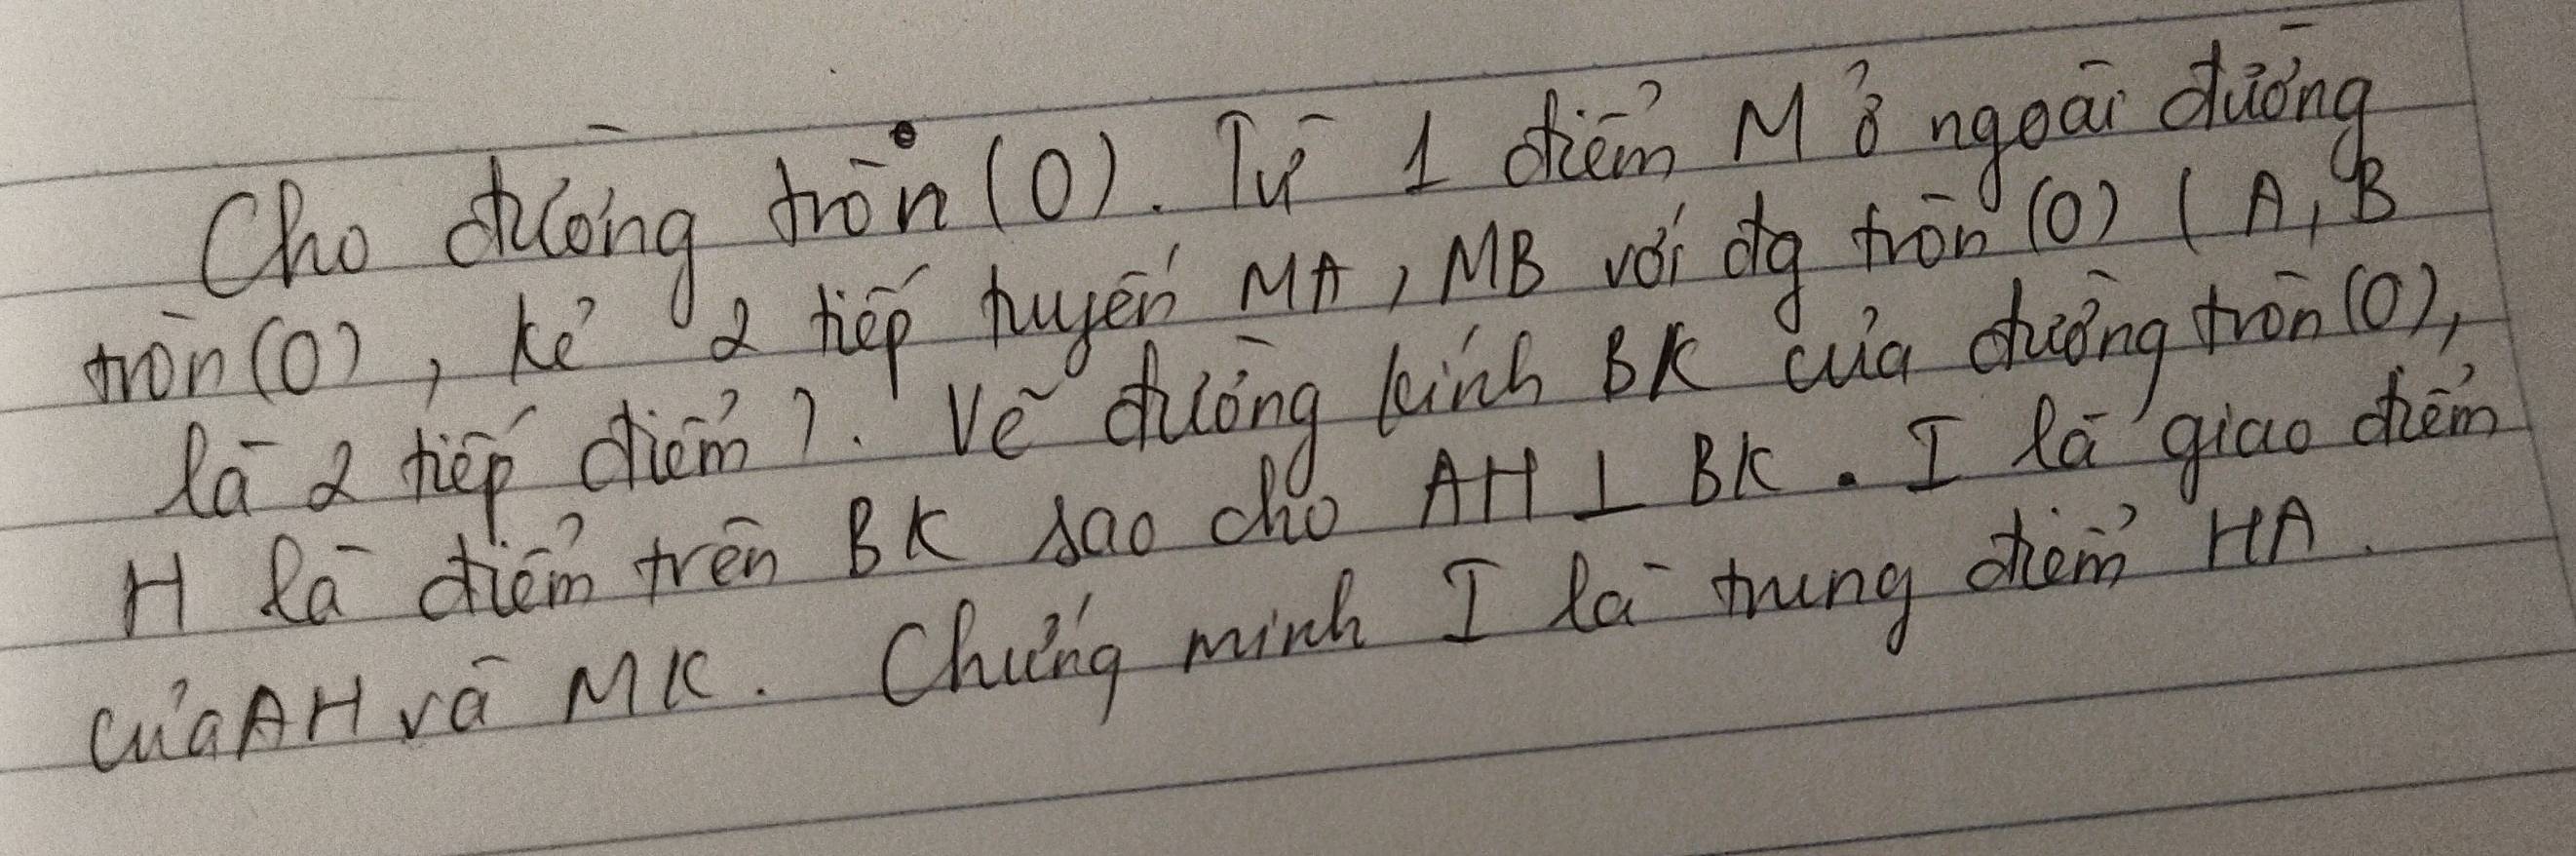 Cho đường tròn (O). Từ 1 điểm M ở ngoài đường
tròn (O), kẻ 2 tiếp tuyến MA, MB với đg tròn (O) (A, B
là 2 tiếp điểm). Vẽ đường kính BK của đường tròn (O),
H là điểm trên BK sao cho AH ⊥ BK. I là giao điểm
của AH và MK. Chứng minh I là trung điểm HA.